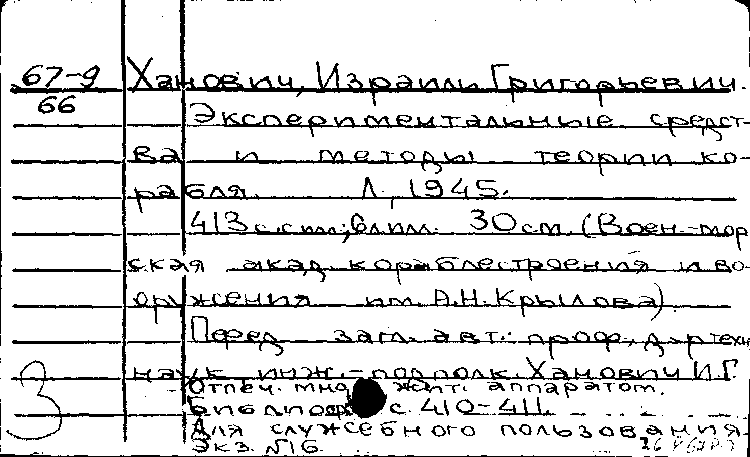 67-9
66
Ханович, Израиль Григорьевич.
Экспериментальные средст-
ва и методы теории ко-
рабля. Л., 1945.
413 с. с илл.; 30 см. (Воен.-мор
ская акад. кораблестроения и во
оружения им. А.Н. Крылова)
Перед загл. авт.: проф., д-р техн
наук инж.-подполк. Ханович И.Г.
Отпеч. множит. аппаратом.
Библиогр. с. 410-411.
Для служебного пользования.
Экз. №16
3